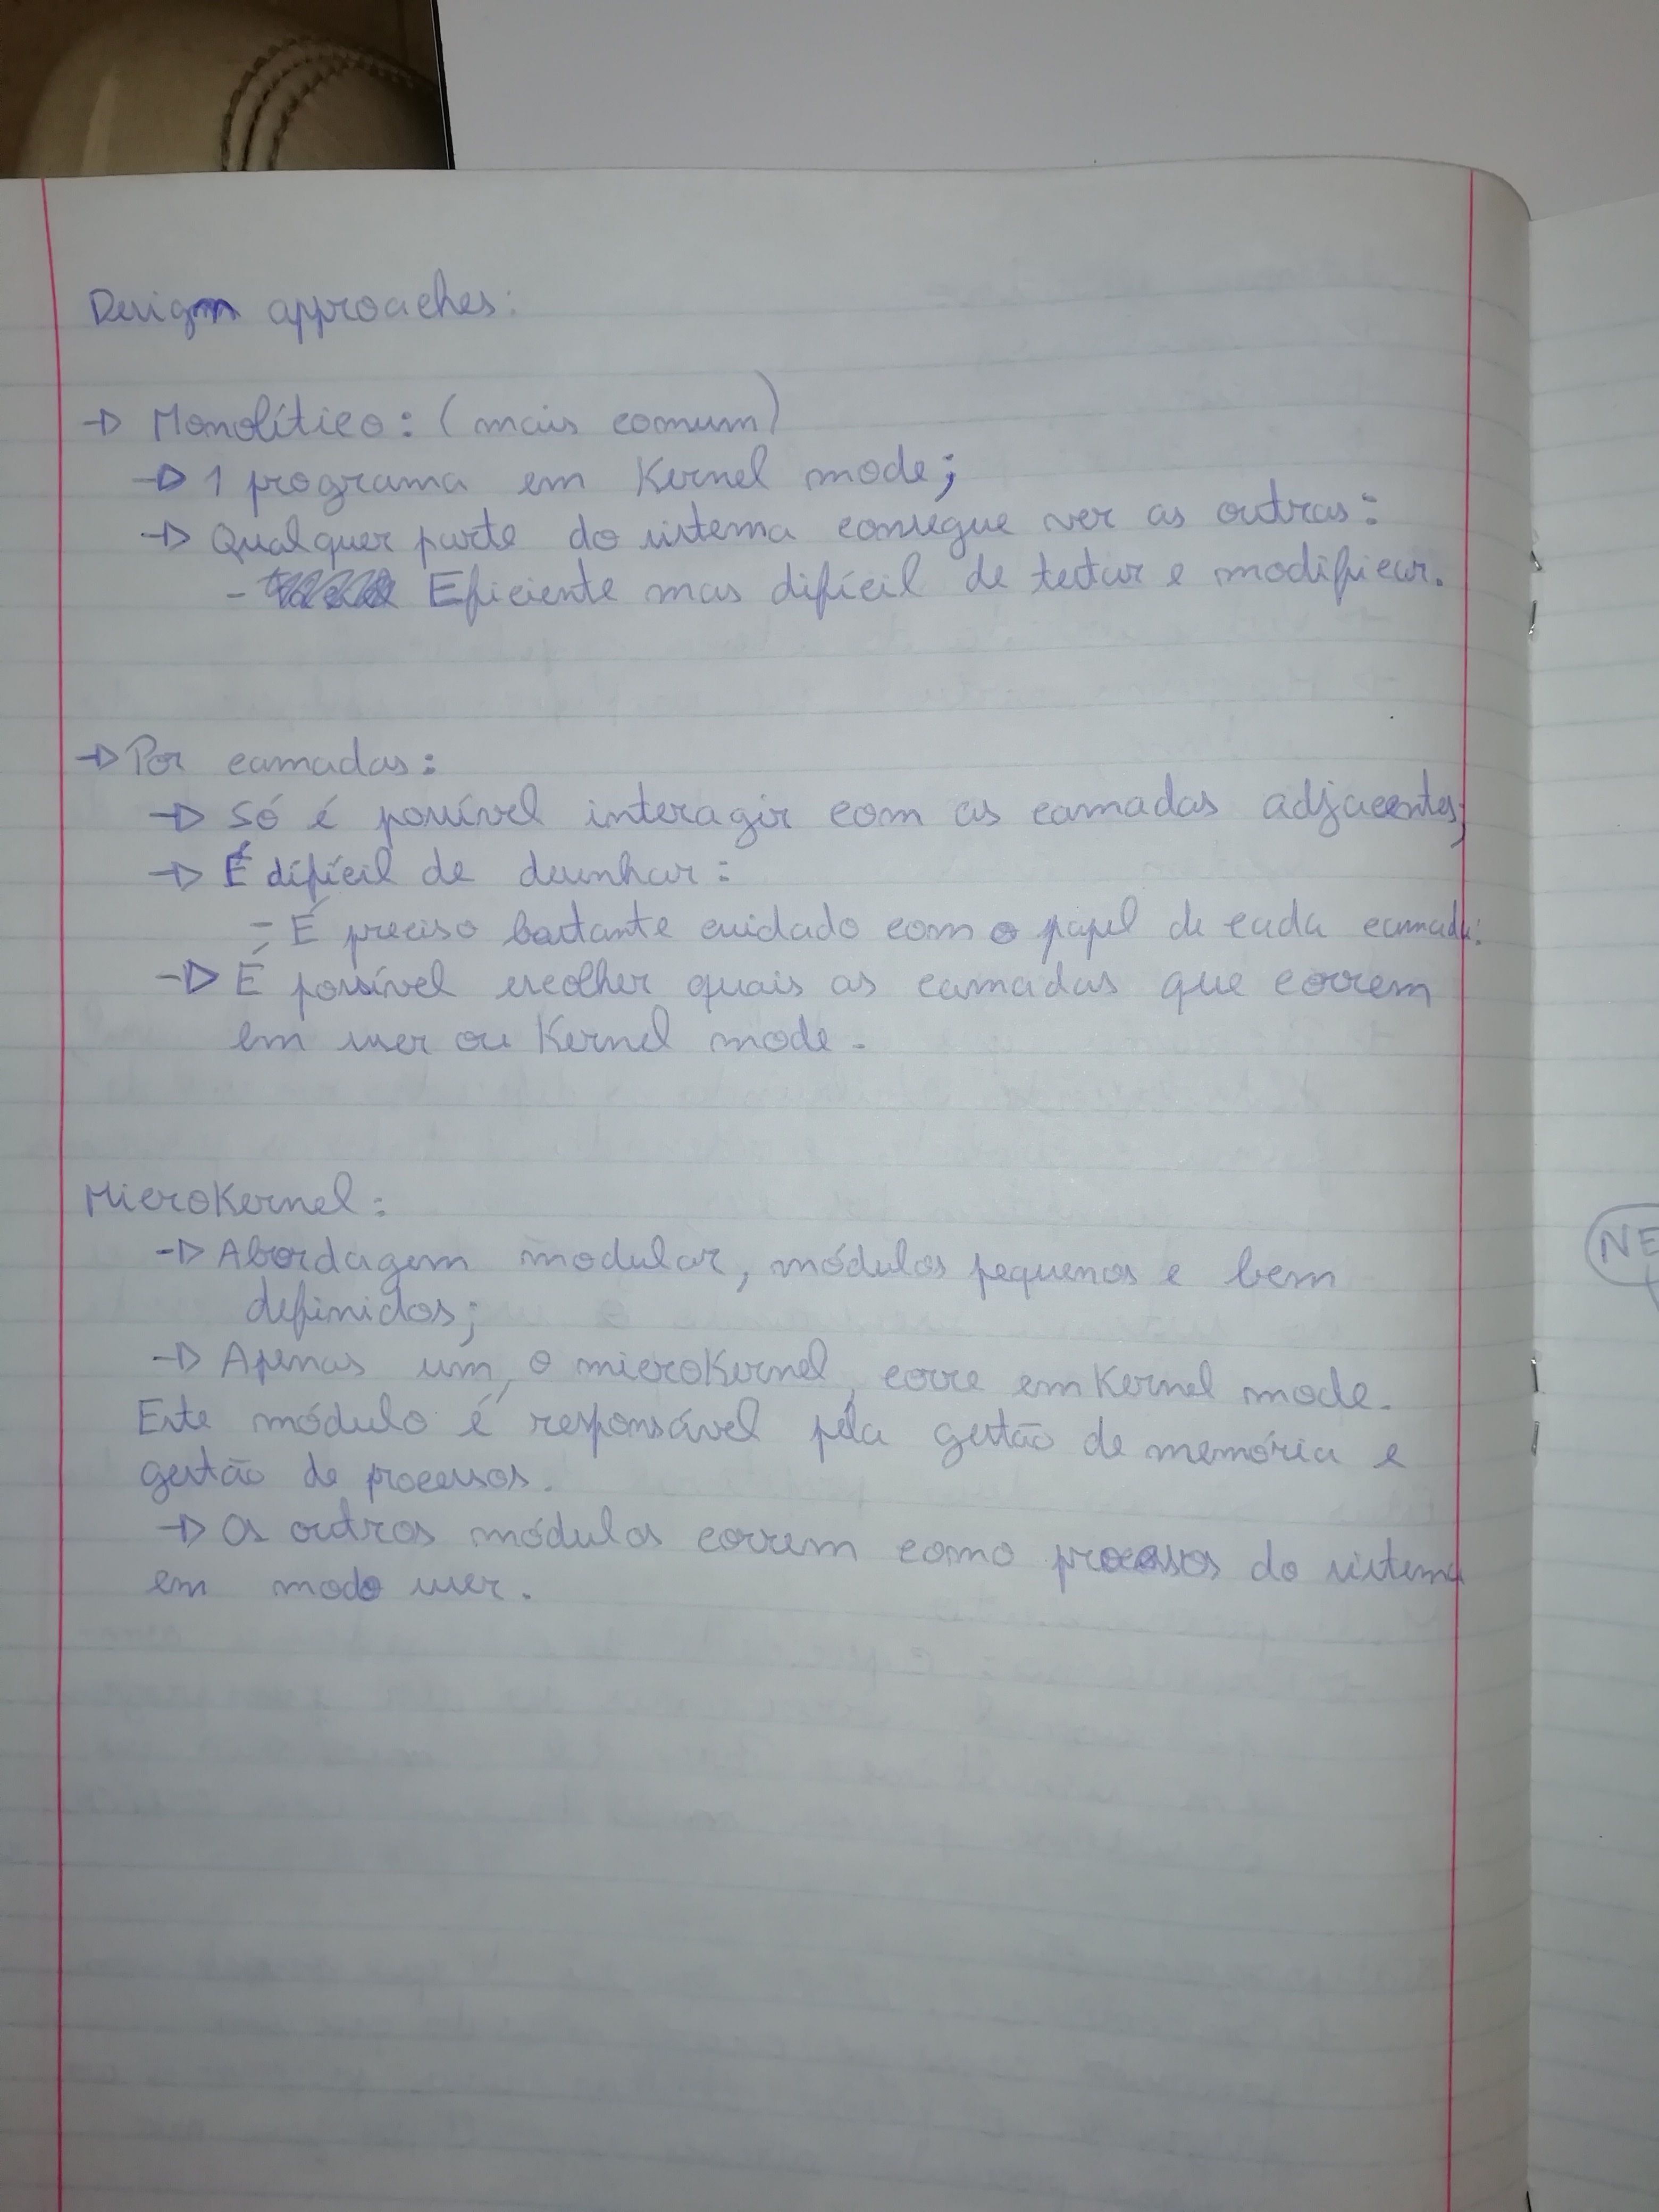 Design approaches:
→ Monolítico: (mais comum)
→ 1 programa em Kernel mode;
→ Qualquer parte do sistema consegue ver as outras:
- Eficiente mas difícil de testar e modificar.
→ Por camadas:
→ Só é possível interagir com as camadas adjacentes;
→ É difícil de desenhar:
- É preciso bastante cuidado com o papel de cada camada;
→ É possível escolher quais as camadas que correm
em user ou Kernel mode.
MicroKernel:
→ Abordagem modular, módulos pequenos e bem
definidos;
→ Apenas um, o microKernel, corre em Kernel mode.
Este módulo é responsável pela gestão de memória e
gestão de processos.
→ Os outros módulos correm como processos do sistema
em modo user.
NE